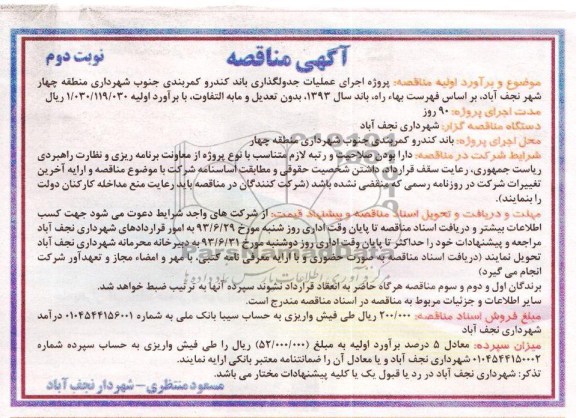 آگهی مناقصه
نوبت دوم
موضوع و برآورد اولیه مناقصه: پروژه اجرای عملیات جدولگذاری باند کندرو کمربندی جنوب شهرداری منطقه چهار
شهر نجف آباد، بر اساس فهرست بهاء راه، باند سال ۱۳۹۳، بدون تعدیل و مابه التفاوت، با برآورد اولیه ۱/۰۳۰/۱۱۹/۰۳۰ ریال
مدت اجرای پروژه: ۹۰ روز
دستگاه مناقصه گزار: شهرداری نجف آباد
محل اجرای پروژه: باند کندرو کمربندی جنوب شهرداری منطقه چهار
شرایط شرکت در مناقصه: دارا بودن صلاحیت و رتبه لازم متناسب با نوع پروژه از معاونت برنامه ریزی و نظارت راهبردی
ریاست جمهوری، رعایت سقف قرارداد، داشتن شخصیت حقوقی و مطابقت اساسنامه شرکت با موضوع مناقصه و ارایه آخرین
تغییرات شرکت در روزنامه رسمی که منقضی نشده باشد (شرکت کنندگان در مناقصه باید رعایت منع مداخله کارکنان دولت
را بنمایند).
مهلت و دریافت و تحویل اسناد مناقصه و پیشنهاد قیمت: از شرکت های واجد شرایط دعوت می شود جهت کسب
اطلاعات بیشتر و دریافت اسناد مناقصه تا پایان وقت اداری روز شنبه مورخ ۹۳/۶/۲۹ به امور قراردادهای شهرداری نجف آباد
مراجعه و پیشنهادات خود را حداکثر تا پایان وقت اداری روز دوشنبه مورخ ۹۳/۶/۳۱ به دبیرخانه محرمانه شهرداری نجف آباد
تحویل نمایند (دریافت اسناد مناقصه به صورت حضوری و با ارایه معرفی نامه کتبی، با مهر و امضاء مجاز و تعهدآور شرکت
انجام می گیرد)
برندگان اول و دوم و سوم مناقصه هرگاه حاضر به انعقاد قرارداد نشوند سپرده آنها به ترتیب ضبط خواهد شد.
سایر اطلاعات و جزئیات مربوط به مناقصه در اسناد مناقصه مندرج است.
مبلغ فروش اسناد مناقصه: ۲۰۰/۰۰۰ ریال طی فیش واریزی به حساب سیبا بانک ملی به شماره ۰۱۰۴۵۴۴۱۵۶۰۰۱ درآمد
شهرداری نجف آباد
میزان سپرده: معادل ۵ درصد برآورد اولیه به مبلغ (۵۲/۰۰۰/۰۰۰) ریال را طی فیش واریزی به حساب سپرده شماره
۰۱۰۴۵۴۴۱۵۰۰۰۲ شهرداری نجف آباد و یا معادل آن را ضمانتنامه معتبر بانکی ارایه نمایند.
تذکر: شهرداری نجف آباد در رد یا قبول یک یا کلیه پیشنهادات مختار می باشد.
مسعود منتظری- شهردار نجف آباد